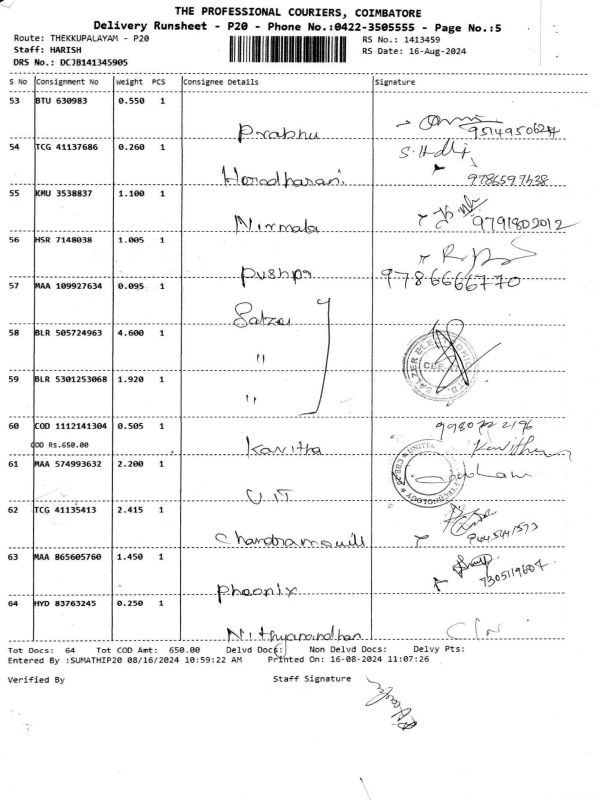 THE PROFESSIONAL COURIERS, COIMBATORE
Delivery Runsheet - P20 - Phone No.:0422-3505555 - Page No.:5
Route: THEKKUPALAYAM - P20 RS No.: 1413459
Staff: HARISH RS Date: 16-Aug-2024
DRS No.: DCJB141345905
S No Consignment No Weight PCS Consignee Details Signature
53 BTU 630983 0.550 1
Prabhu
54 TCG 41137686 0.260 1
55 KMU 3538837 1.100 1
Nirmala 9791802012
56 HSR 7148038 1.005 1
Pushpa 9786666770
57 MAA 109927634 0.095 1
Salzer
58 BLR 505724963 4.600 1
"
59 BLR 5301253068 1.920 1
"
60 COD 1112141304 0.505 1 998072 2196
COD Rs.650.00 Kavitha
61 MAA 574993632 2.200 1
UIT
62 TCG 41135413 2.415 1
63 MAA 865605760 1.450 1
Pheonix 7305119604
64 HYD 83763245 0.250 1
Nithyanandhan
Tot Docs: 64 Tot COD Amt: 650.00 Delvd Docs: Non Delvd Docs: Delvy Pts:
Entered By :SUMATHIP20 08/16/2024 10:59:22 AM Printed On: 16-08-2024 11:07:26
Verified By Staff Signature